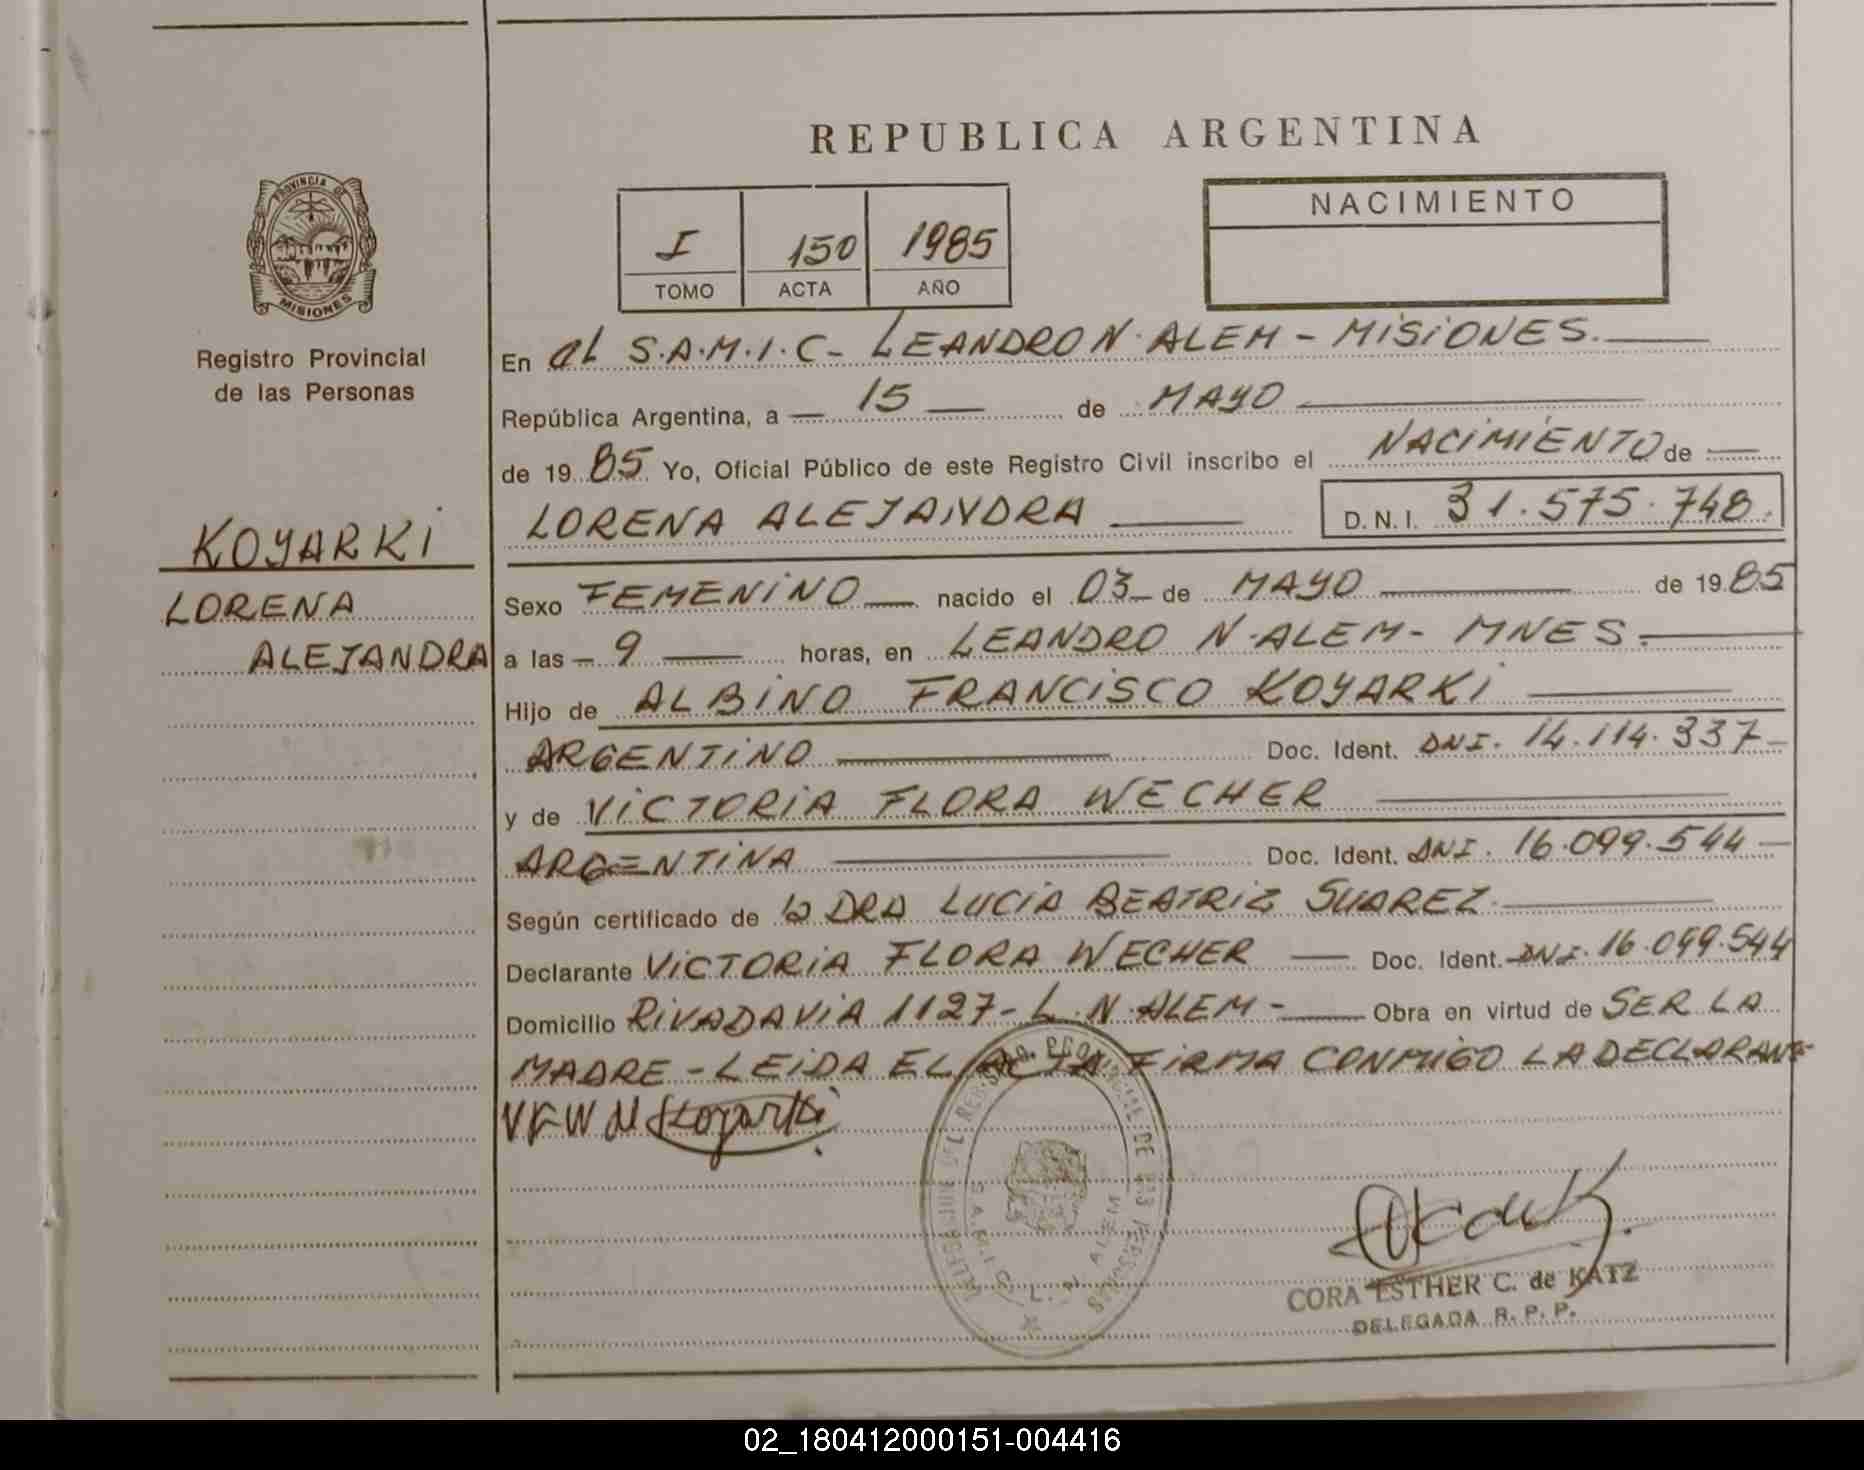 REPUBLICA ARGENTINA
PROVINCIA DE
MISIONES
Registro Provincial
de las Personas
KOYARKI
LORENA
ALEJANDRA
I 150 1985
TOMO ACTA AÑO
NACIMIENTO
En el S.A.M.I.C- LEANDRO N. ALEM - MISIONES.
República Argentina, a 15 de MAYO
de 1985 Yo, Oficial Público de este Registro Civil inscribo el NACIMIENTO de
LORENA ALEJANDRA D.N.I. 31.575.748.
Sexo FEMENINO nacido el 03 de MAYO de 1985
a las 9 horas, en LEANDRO N. ALEM - MNES.
Hijo de ALBINO FRANCISCO KOYARKI
ARGENTINO Doc. Ident. DNI. 14.114.337
y de VICTORIA FLORA WECHER
ARGENTINA Doc. Ident. DNI. 16.099.544
Según certificado de la DRA LUCIA BEATRIZ SUAREZ
Declarante VICTORIA FLORA WECHER Doc. Ident. DNI. 16.099.544
Domicilio RIVADAVIA 1127 - L. N. ALEM - Obra en virtud de SER LA
MADRE - LEIDA EL ACTA FIRMA CONMIGO LA DECLARANTE
VFW de Koyarki
S.A.M.I.C. L. N. ALEM
CORA ESTHER C. de KATZ
DELEGADA R. P. P.
02_180412000151-004416